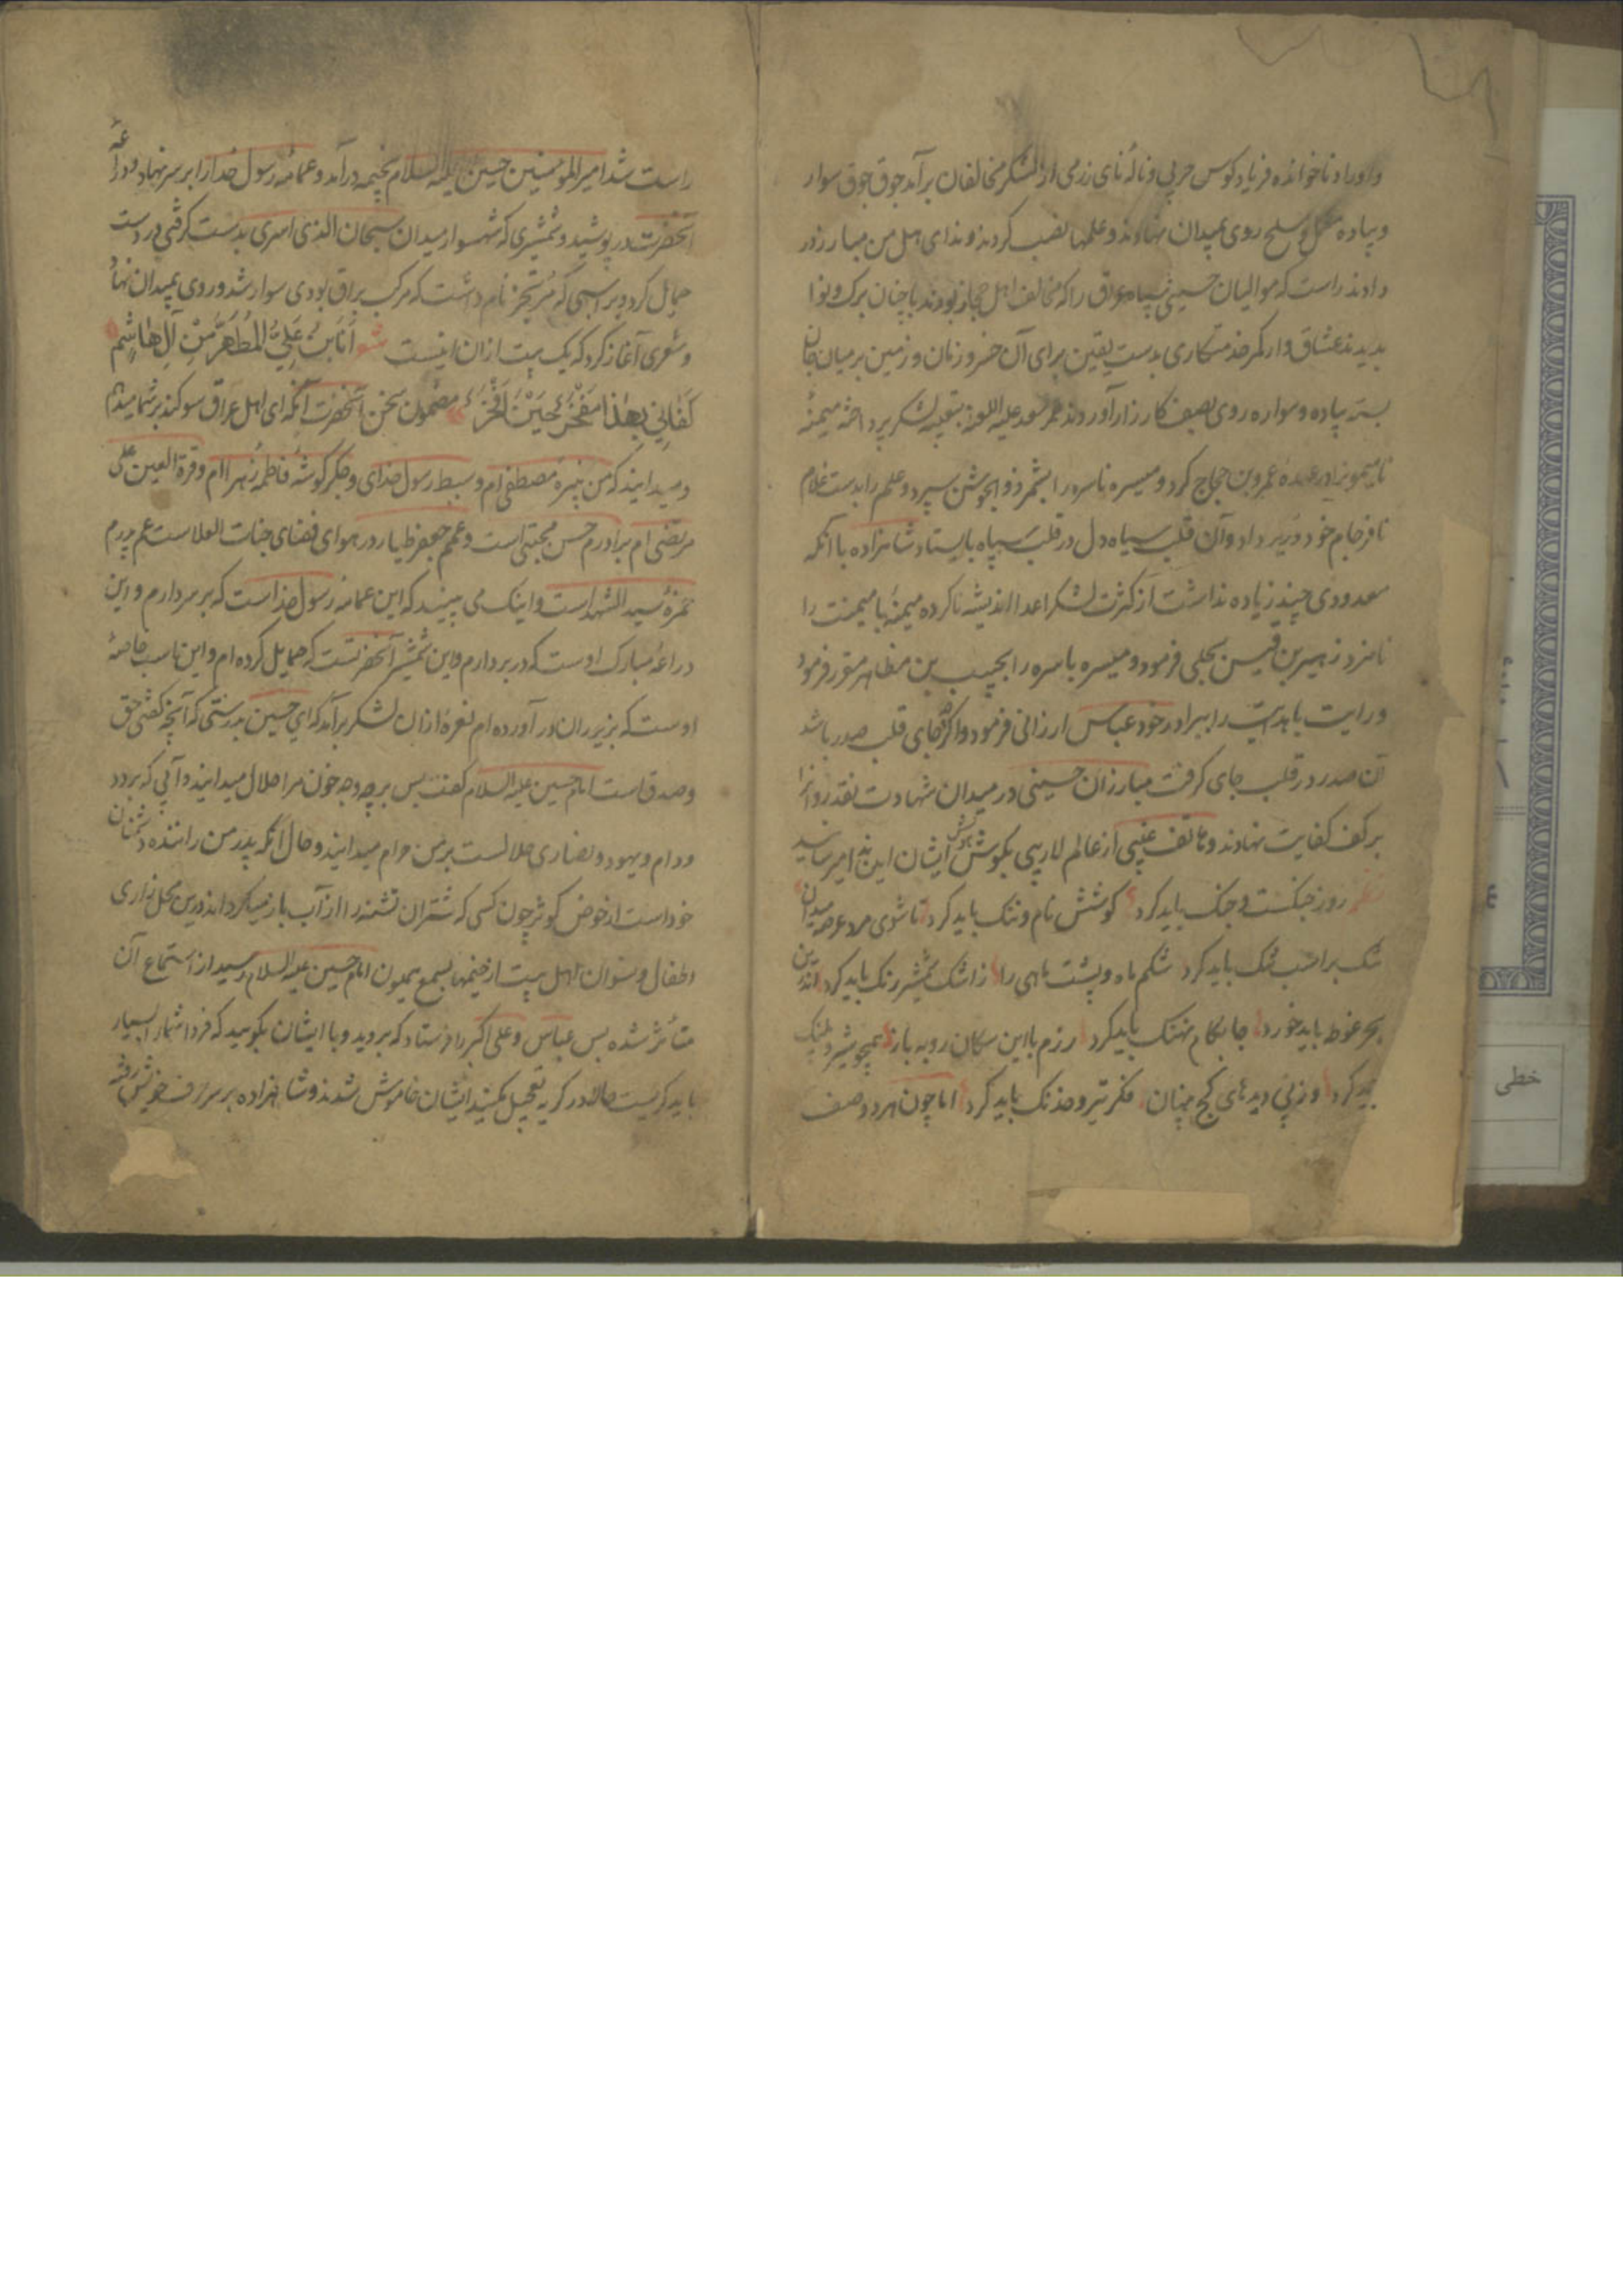 و اوراد ناخوانده فریاد کوس حربی و نالهٔ نای رزمی از لشکر مخالفان برآمد جوق جوق سوار
و پیاده مکمل و مسلح روی بمیدان نهادند و علمها نصب کردند و ندای هل من مبارز در
دادند راست که موالیان حسینی سپاه عراق را که مخالف اهل حجاز بودند با چنان برک و نوا
بدیدند عشاق وار کمر خدمتکاری بدست یقین برای آن خسرو زمان و زمین بر میان جان
بسته پیاده و سواره روی بصف کارزار آوردند عمر سعد علیه اللعنه بتعبیه لشکر پرداخته میمنهٔ
نامیمون را در عهده عمرو بن حجاج کرد و میسره ناسره را بشمر ذو الجوشن سپرد و علم را بدست غلام
نافرجام خود درید داد و آن قلب سیاه دل در قلب سپاه بایستاد شاهزاده با آنکه
معدودی چند زیاده نداشت از کثرت لشکر اعدا اندیشه ناکرده میمنهٔ با میمنت را
نامزد زهیر بن قیس بجلی فرمود و میسره باسره را بحبیب بن مظاهر مقرر فرمود
و رایت با هدایت را ببرادر خود عباس ارزانی فرمود و اگرچه جای قلب صدر باشد
آن صدر در قلب جای گرفت مبارزان حسینی در میدان شهادت نقد روانرا
بر کف کفایت نهادند و هاتف غیبی از عالم لاریبی بگوش هوش ایشان این ندا میرسانید
نظم روز جنکست و جنک باید کرد کوشش نام و ننک باید کرد تا شوی مرد عرصه میدان
تنک بر اسب تنک باید کرد شکم ماه و پشت ماهی را ز اشک شمشیر رنک باید کرد اندرین
بحر غوطه باید خورد جا بکام نهنک باید کرد رزم با این سکان روبه باز همچو شیر و پلنک
باید کرد وز پی دیدهای کج بینان فکر تیر و خدنک باید کرد اما چون هر دو صف
راست شد امیر المؤمنین حسین علیه السلام بخیمه درآمد و عمامه رسول خدا را بر سر نهاد و دراعهٔ
آنحضرت در پوشید و شمشیری که شهسوار میدان سبحان الذی اسری بدست گرفتی در دست
حمایل کرد و بر اسبی که مرتجز نام داشت که مرکب براق بودی سوار شد و روی بمیدان نهاد
و شعری آغاز کرد که یک بیت از آن اینست شعر أَنَا ابْنُ عَلِيِّ الْمُطَهَّرِ مِنْ آلِ هَاشِمٍ
كَفَانِي بِهٰذَا مَفْخَرٌ حِيْنَ أَفْخَرُ مضمون سخن آنحضرت آنکه ای اهل عراق سوکند بر شما میدهم
و میدانید که من نبیرهٔ مصطفی ام و سبط رسول خدای و جگر گوشهٔ فاطمه زهرا ام و قرة العین علی
مرتضی ام برادرم حسن مجتبی است و عمم جعفر طیار در هوای فضای جنات العلاست عم پدرم
حمزهٔ سید الشهداست و اینک می بینید که این عمامه رسول خداست که بر سر دارم و این
دراعهٔ مبارک اوست که در بر دارم و این شمشیر آنحضرتست که حمایل کرده ام و این اسب خاصهٔ
اوست که بزیر ران در آورده ام نعره از آن لشکر برآمد که ای حسین بدرستی که آنچه گفتی حق
و صدق است امام حسین علیه السلام گفت پس بر چه وجه خون مرا حلال میدانید و آبی که بر دد
و دام و یهود و نصاری حلالست بر من حرام میدانید و حال آنکه پدر من راننده دشمنان
خود است از حوض کوثر چون کسی که شتران تشنه را از آب باز میگرداند در این محل زاری
اطفال و نسوان اهل بیت از خیمها بسمع میمون امام حسین علیه السلام رسید از استماع آن
متأثر شده پس عباس و علی اکبر را فرستاد که بروید و با ایشان بگویید که فردا شما را بسیار
باید گریست حالا در گریه تعجیل مکنید ایشان خاموش شدند و شاهزاده بر سر حرف خویش رفته
خطی